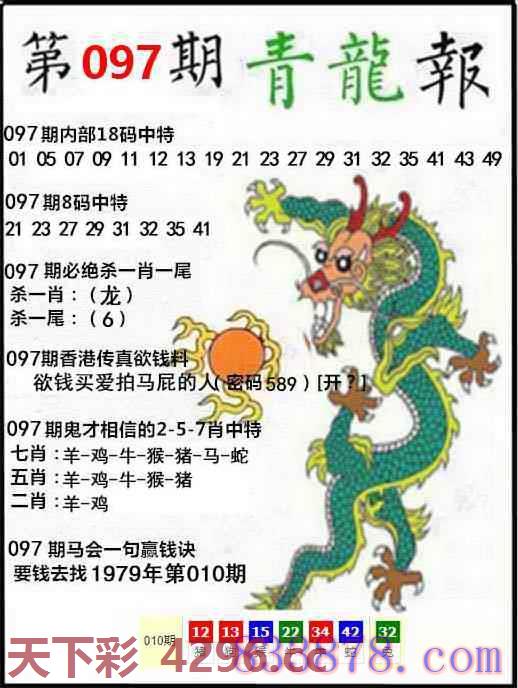 第097期青龍報
097期内部18码中特
01 05 07 09 11 12 13 19 21 23 27 29 31 32 35 41 43 49
097期8码中特
21 23 27 29 31 32 35 41
097期必绝杀一肖一尾
杀一肖:(龙)
杀一尾:(6)
097期香港传真欲钱料
欲钱买爱拍马屁的人(密码589)[开?]
097期鬼才相信的2-5-7肖中特
七肖:羊-鸡-牛-猴-猪-马-蛇
五肖:羊-鸡-牛-猴-猪
二肖:羊-鸡
097期马会一句赢钱诀
要钱去找1979年第010期
010期 12 13 15 22 34 42 32
猪 蛇 兔
天下彩 4296.cc
838878.com